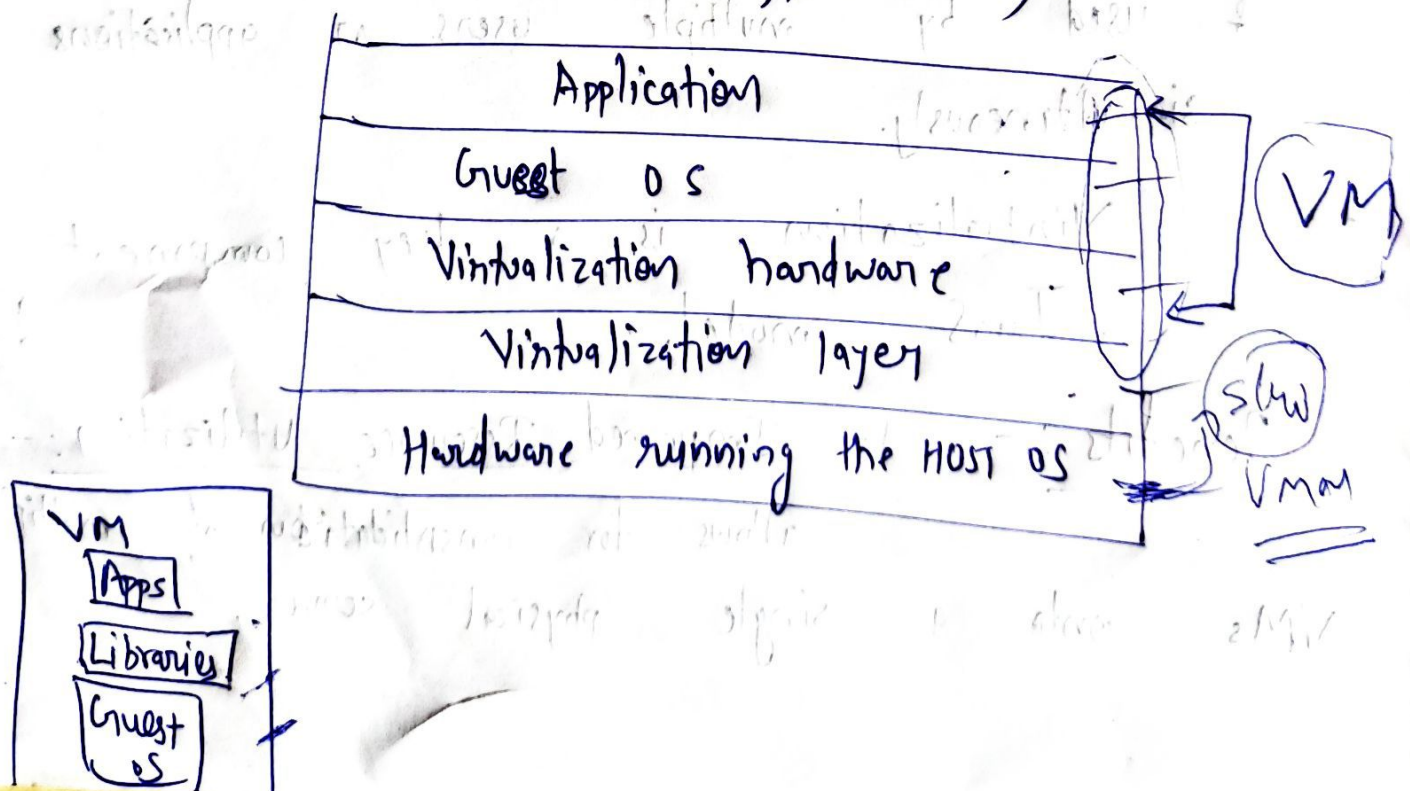 Application
Guest OS
VM
Virtualization hardware
Virtualization layer
S/W
Hardware running the HOST OS
VMM
VM
Apps
Libraries
Guest
OS